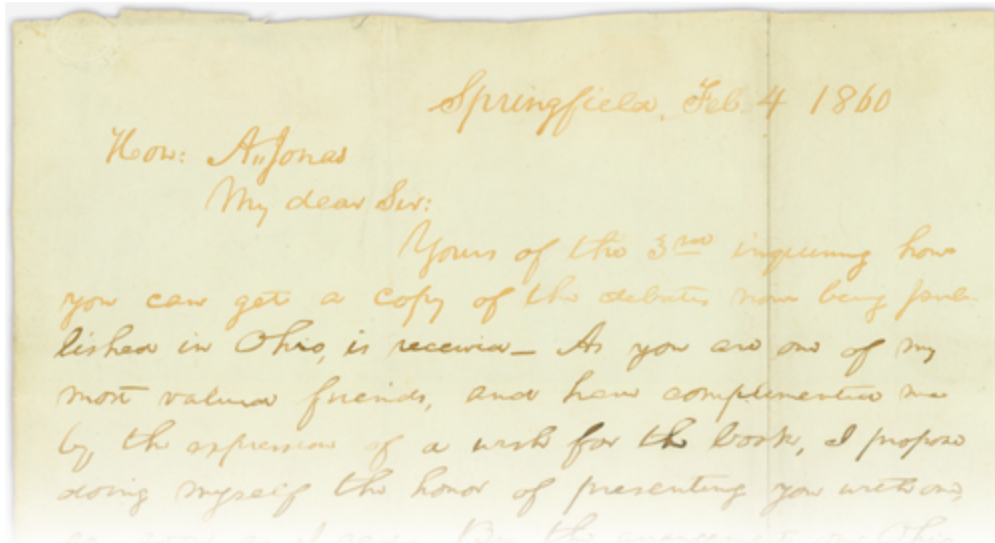 Springfield, Feb. 4 1860
Hon: A. Jonas
My dear Sir:
Yours of the 3rd inquiring how
you can get a copy of the debates now being pub-
lished in Ohio, is received— As you are one of my
most valued friends, and have complimented me
by the expression of a wish for the book, I propose
doing myself the honor of presenting you with one,
as soon as I can. By the arrangement our Ohio